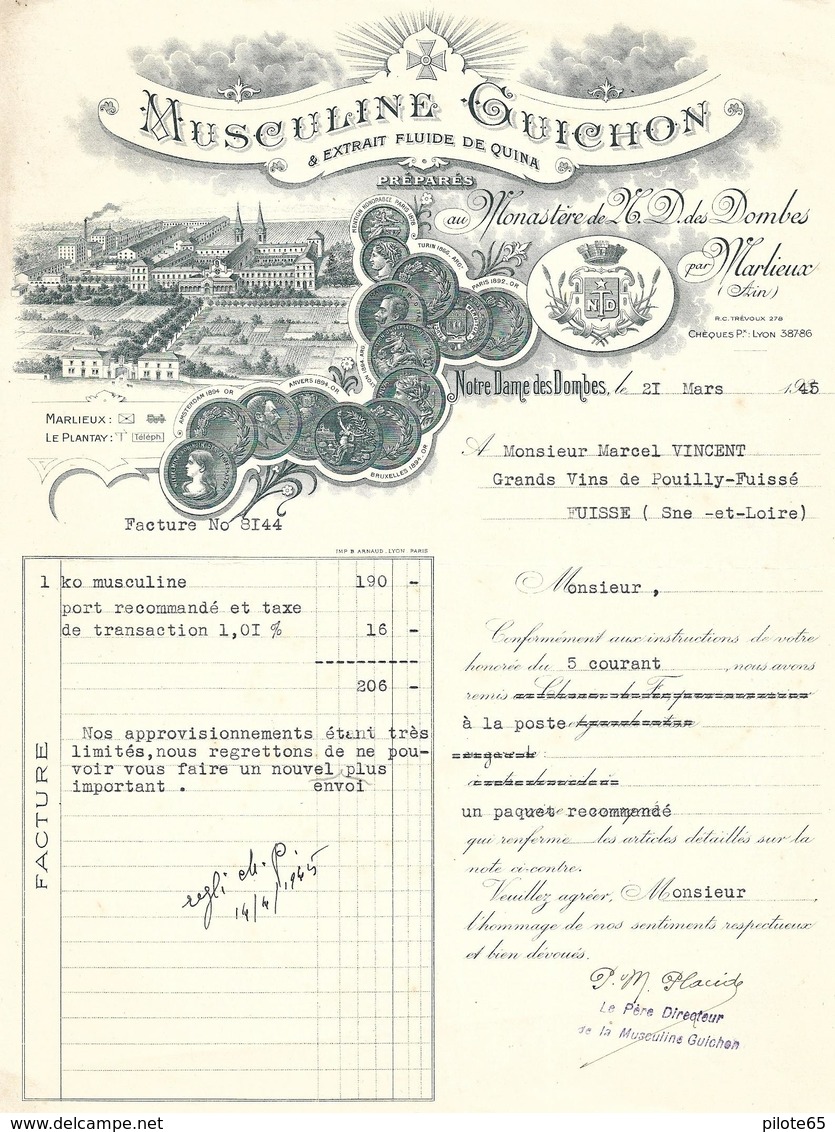 MUSCULINE GUICHON
& EXTRAIT FLUIDE DE QUINA
PRÉPARÉS
au Monastère de N. D. des Dombes
par Marlieux
(Ain)
R.C. TRÉVOUX 278
CHÈQUES Px: LYON 38786
MENTION HONORABLE PARIS 1878
TURIN 1892. ARGt
PARIS 1892. OR
LYON 1894. ARG
ANVERS 1894. OR
AMSTERDAM 1894 OR
BRUXELLES 1894. OR
ND
MARLIEUX :
LE PLANTAY : T Téléph
Notre Dame des Dombes, le 21 Mars 1945
A Monsieur Marcel VINCENT
Grands Vins de Pouilly-Fuissé
FUISSE ( Sne -et-Loire)
Facture No 8I44
IMP B ARNAUD. LYON PARIS
FACTURE
1 ko musculine 190 -
port recommandé et taxe
de transaction 1,0I % 16 -
206 -
Nos approvisionnements étant très
limités,nous regrettons de ne pou-
voir vous faire un nouvel plus
important . envoi
regli ch. p.
14/4/1945
Monsieur ,
Conformément aux instructions de votre
honorée du 5 courant , nous avons
remis
à la poste
un paquet recommandé
qui renferme les articles détaillés sur la
note ci-contre.
Veuillez agréer, Monsieur
l'hommage de nos sentiments respectueux
et bien dévoués.
P. M. Placide
Le Père Directeur
de la Musculine Guichon
delcampe.net
pilote65